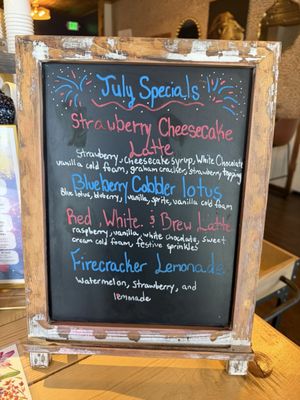 July Specials
Strawberry Cheesecake
Latte
Strawberry, cheesecake syrup, White Chocolate
vanilla cold foam, graham cracker, strawberry topping
Blueberry Cobbler lotus
Blue lotus, blueberry, vanilla, sprite, vanilla cold foam
Red, White, & Brew Latte
raspberry, vanilla, white chocolate, sweet
cream cold foam, festive sprinkles
Firecracker Lemonade
Watermelon, Strawberry, and
lemonade